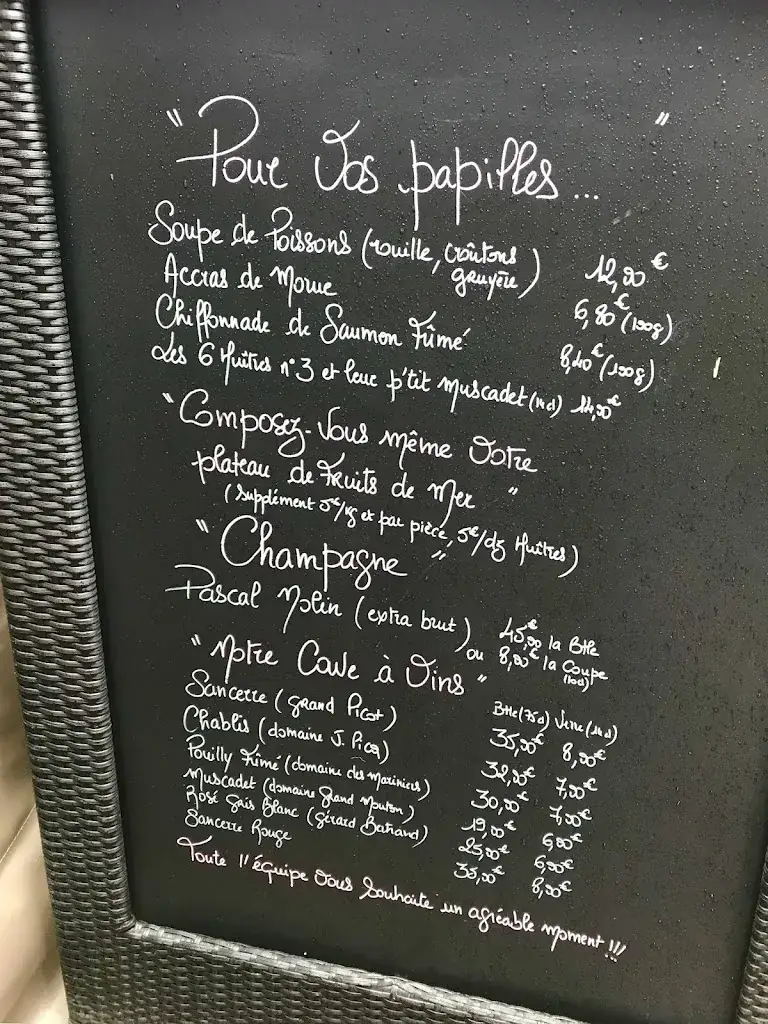 " Pour Vos papilles... "
Soupe de Poissons (rouille, croûtons gruyère) 12,00 €
Accras de Morue 6,80€ (100g)
Chiffonnade de Saumon Fûmé 8,40€ (100g)
Les 6 Huîtres n°3 et leur p'tit muscadet (14cl) 14,00€
"Composez-Vous même Votre
plateau de Fruits de Mer "
(Supplément 5€/kg et par pièce, 5€/dz Huîtres)
" Champagne "
Pascal Molin (extra brut) 45,00€ la Btle
ou 8,00€ la Coupe (10cl)
" Notre Cave à Vins "
Btle (75cl) Verre (14cl)
Sancerre (Grand Picot) 35,00€ 8,00€
Chablis (domaine J. Picq) 32,00€ 7,00€
Pouilly Fûmé (domaine des Mariniers) 30,00€ 7,00€
Muscadet (domaine Grand Mouton) 19,00€ 6,00€
Rosé Gris Blanc (Gérard Bertrand) 25,00€ 6,00€
Sancerre Rouge 35,00€ 8,00€
Toute l'équipe Vous Souhaite un agréable moment !!!